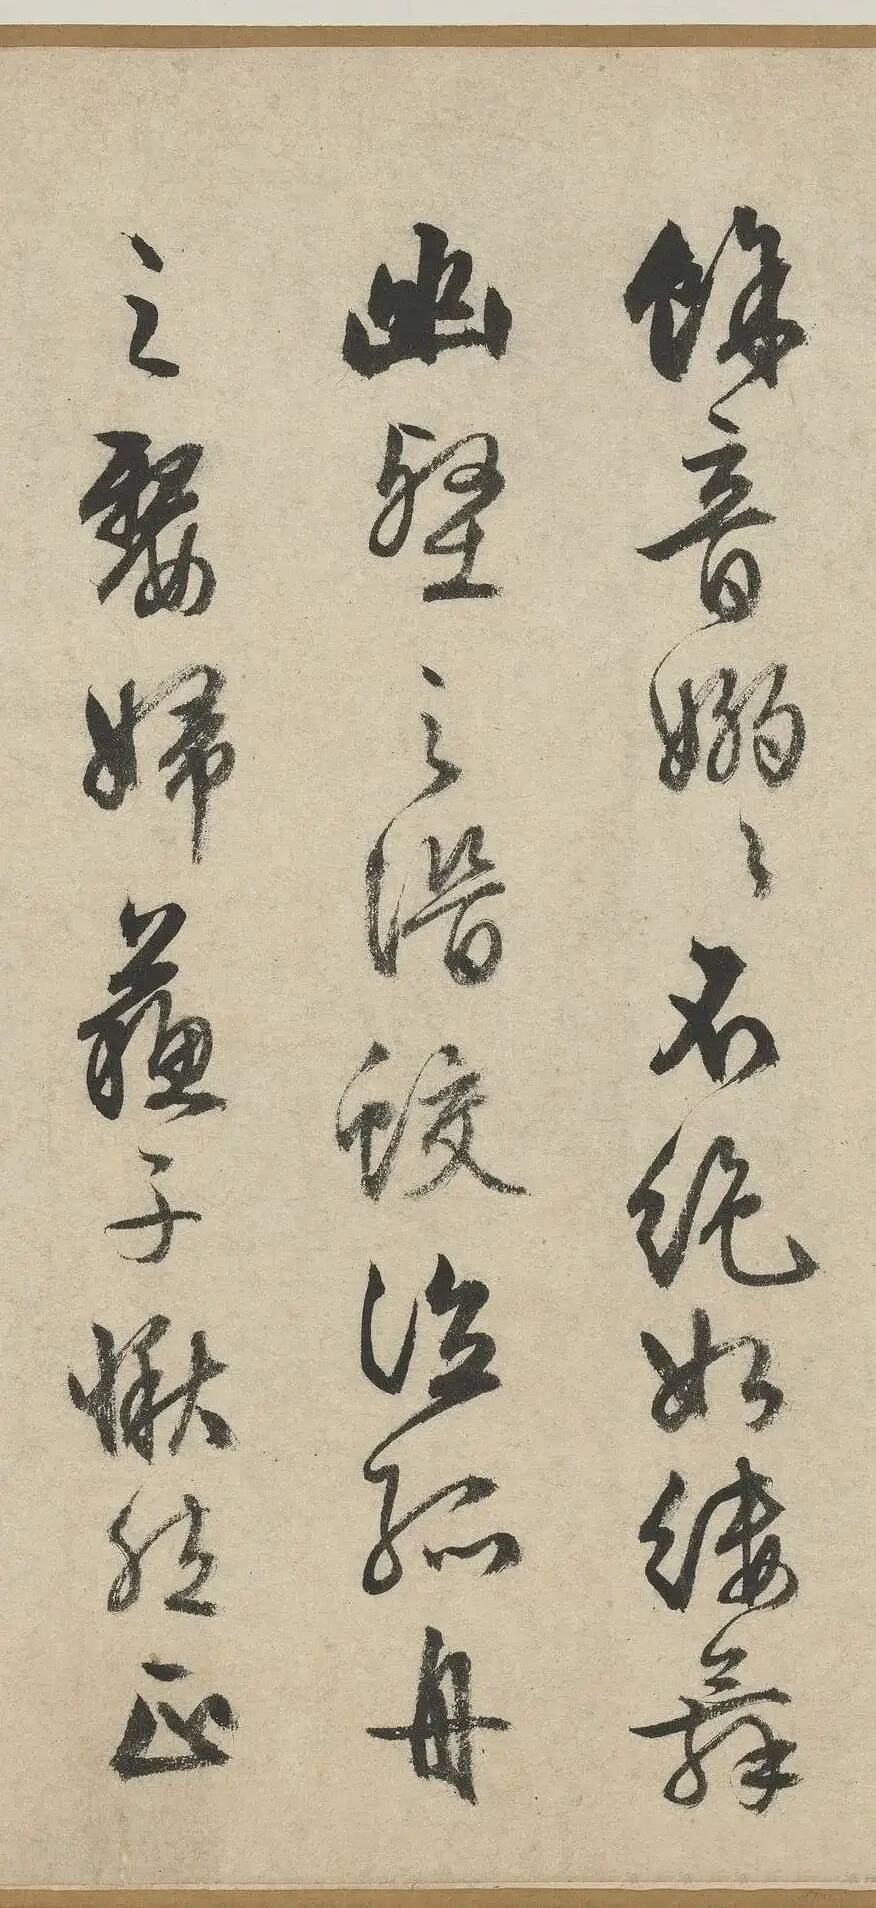 餘音嫋々不絶如縷舞
幽壑之潛蛟泣孤舟
之嫠婦蘇子愀然正